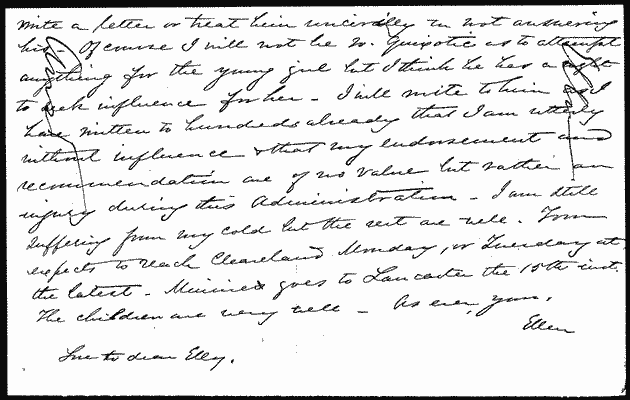 write a letter or treat him uncivilly in not answering
his. Of course I will not be so Quixotic as to attempt
anything for the young girl but I think he has a right
to seek influence for her - I will write to him as I
have written to hundreds already that I am utterly
without influence & that my endorsement and
recommendation are of no value but rather an
injury during this Administration - I am still
suffering from my cold but the rest are well. Tom
expects to reach Cleveland Monday, or Tuesday at
the latest - Minnie goes to Lancaster the 15th inst.
The children are very well - As ever, yours,
Ellen
Love to dear Elly.